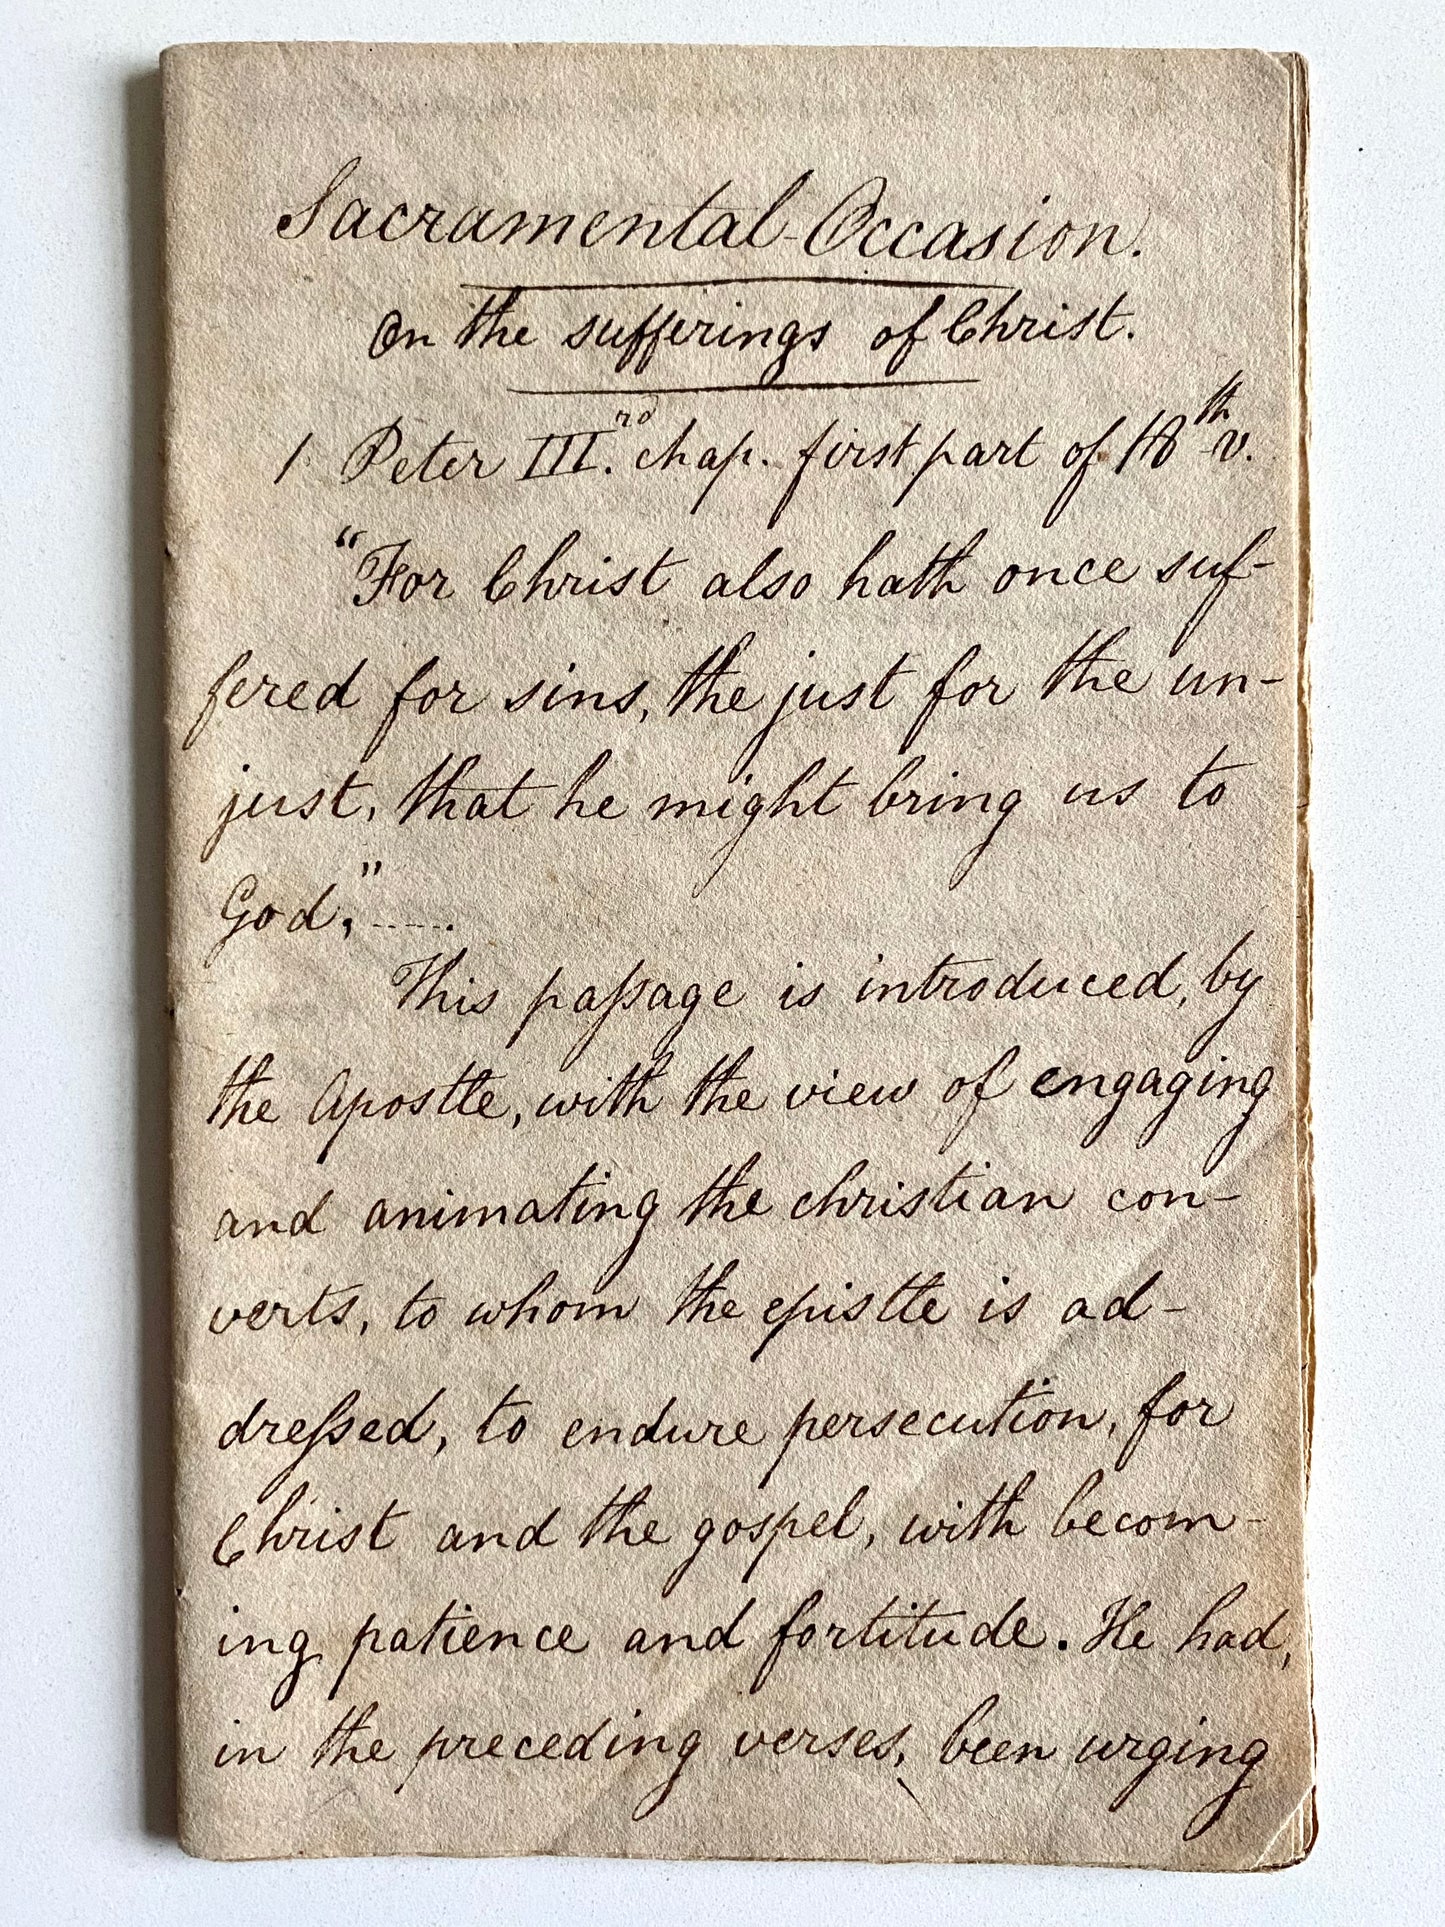 Sacramental-Occasion.
On the sufferings of Christ.
1 Peter III.rd chap. first part of 18th v.
"For Christ also hath once suf-
fered for sins, the just for the un-
just, that he might bring us to
God,"-----.
This paſsage is introduced, by
the Apostle, with the view of engaging
and animating the christian con-
verts, to whom the epistle is ad-
dreſsed, to endure persecution, for
Christ and the gospel, with becom-
ing patience and fortitude. He had,
in the preceding verses, been urging